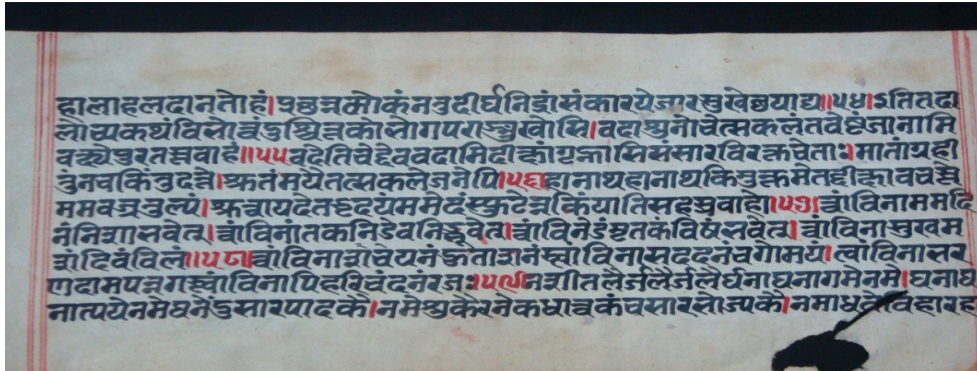 हालाहलदानतोहं।प्रछन्नमोकंननुदीर्घनिद्रांसंकारयेजारसुखेछयाद्य॥५४।ऽप्तितदा
लोच्यकथंविसोन्नंदुश्चिन्नकोलोगपराङ्मुखोसि।वदाश्रुनोचेत्सकलंतवेष्टंजानामि
वक्ष्येपुरतस्तवाहं॥५५वदेतिचेद्देववदामिदीक्षांगृह्णासिसंसारविरक्तचेताः।मातांग्रही
तुंनचकिंतुदत्ते।श्रुतंमयैतत्सकलेजनेपि।५६हानाथहानाथकिमुक्तमेतद्दीक्षावचस्ते
ममवज्रतुल्यं।श्रुत्वायदेतद्धृदयंममेदंस्फुटेन्नकियातिसहस्रवाहा।५७।त्वांविनाममदि
नंनिशासवेत्।त्वांविनांतकनिडेवनिद्भवेत।त्वांविनेडंमृतकंविषसवेत।त्वांविनासुखम
त्रादिवंविलं॥५८।त्वांविनात्राचेयनंकृताशनंस्त्वांविनासददनंचगोमयं।त्वांविनासर
णदामपन्नगस्त्वांविनापिहरिचंदनंरजः।५९।नशीतलैर्जलैर्जलैर्घनाघनागमेनमे।घनाघ
नात्ययेनमेघनेंदुसारपादकैः।नमेशुकैरनेकधात्वकंचसारसोज्पकैः।नमाधवे